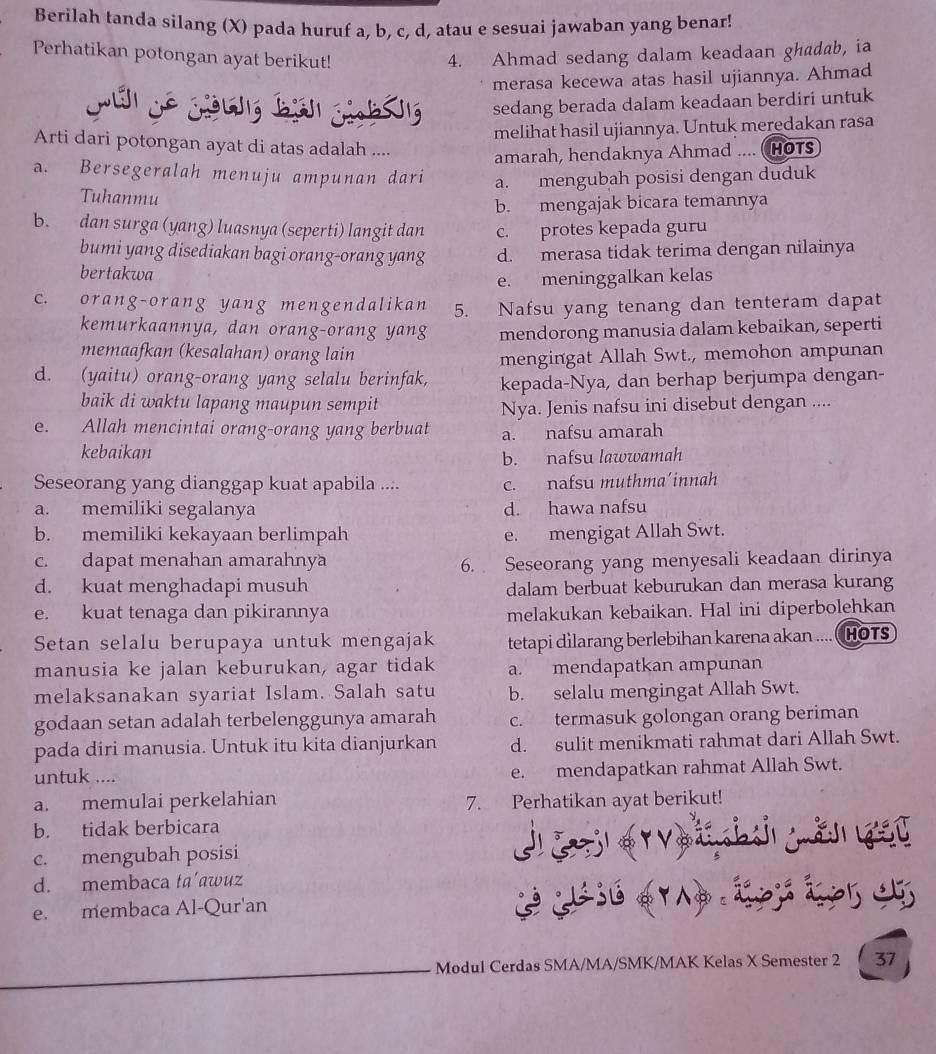 Berilah tanda silang (X) pada huruf a, b, c, d, atau e sesuai jawaban yang benar!
Perhatikan potongan ayat berikut!
وَالْكٰظِمِيْنَ الْغَيْظَ وَالْعَافِيْنَ عَنِ النَّاسِۗ
Arti dari potongan ayat di atas adalah ....
a. Bersegeralah menuju ampunan dari
Tuhanmu
b. dan surga (yang) luasnya (seperti) langit dan
bumi yang disediakan bagi orang-orang yang
bertakwa
c. orang-orang yang mengendalikan
kemurkaannya, dan orang-orang yang
memaafkan (kesalahan) orang lain
d. (yaitu) orang-orang yang selalu berinfak,
baik di waktu lapang maupun sempit
e. Allah mencintai orang-orang yang berbuat
kebaikan
Seseorang yang dianggap kuat apabila ....
a. memiliki segalanya
b. memiliki kekayaan berlimpah
c. dapat menahan amarahnya
d. kuat menghadapi musuh
e. kuat tenaga dan pikirannya
Setan selalu berupaya untuk mengajak
manusia ke jalan keburukan, agar tidak
melaksanakan syariat Islam. Salah satu
godaan setan adalah terbelenggunya amarah
pada diri manusia. Untuk itu kita dianjurkan
untuk ....
a. memulai perkelahian
b. tidak berbicara
c. mengubah posisi
d. membaca ta'awuz
e. membaca Al-Qur'an
4. Ahmad sedang dalam keadaan ghadab, ia
merasa kecewa atas hasil ujiannya. Ahmad
sedang berada dalam keadaan berdiri untuk
melihat hasil ujiannya. Untuk meredakan rasa
amarah, hendaknya Ahmad .... HOTS
a. mengubah posisi dengan duduk
b. mengajak bicara temannya
c. protes kepada guru
d. merasa tidak terima dengan nilainya
e. meninggalkan kelas
5. Nafsu yang tenang dan tenteram dapat
mendorong manusia dalam kebaikan, seperti
mengingat Allah Swt., memohon ampunan
kepada-Nya, dan berhap berjumpa dengan-
Nya. Jenis nafsu ini disebut dengan ....
a. nafsu amarah
b. nafsu lawwamah
c. nafsu muthma'innah
d. hawa nafsu
e. mengigat Allah Swt.
6. Seseorang yang menyesali keadaan dirinya
dalam berbuat keburukan dan merasa kurang
melakukan kebaikan. Hal ini diperbolehkan
tetapi dilarang berlebihan karena akan .... HOTS
a. mendapatkan ampunan
b. selalu mengingat Allah Swt.
c. termasuk golongan orang beriman
d. sulit menikmati rahmat dari Allah Swt.
e. mendapatkan rahmat Allah Swt.
7. Perhatikan ayat berikut!
يٰٓاَيَّتُهَا النَّفْسُ الْمُطْمَىِٕنَّةُ ﴿٢٧﴾ ارْجِعِيْٓ اِلٰى
رَبِّكِ رَاضِيَةً مَّرْضِيَّةً ۚ ﴿٢٨﴾ فَادْخُلِيْ فِيْ
Modul Cerdas SMA/MA/SMK/MAK Kelas X Semester 2 37